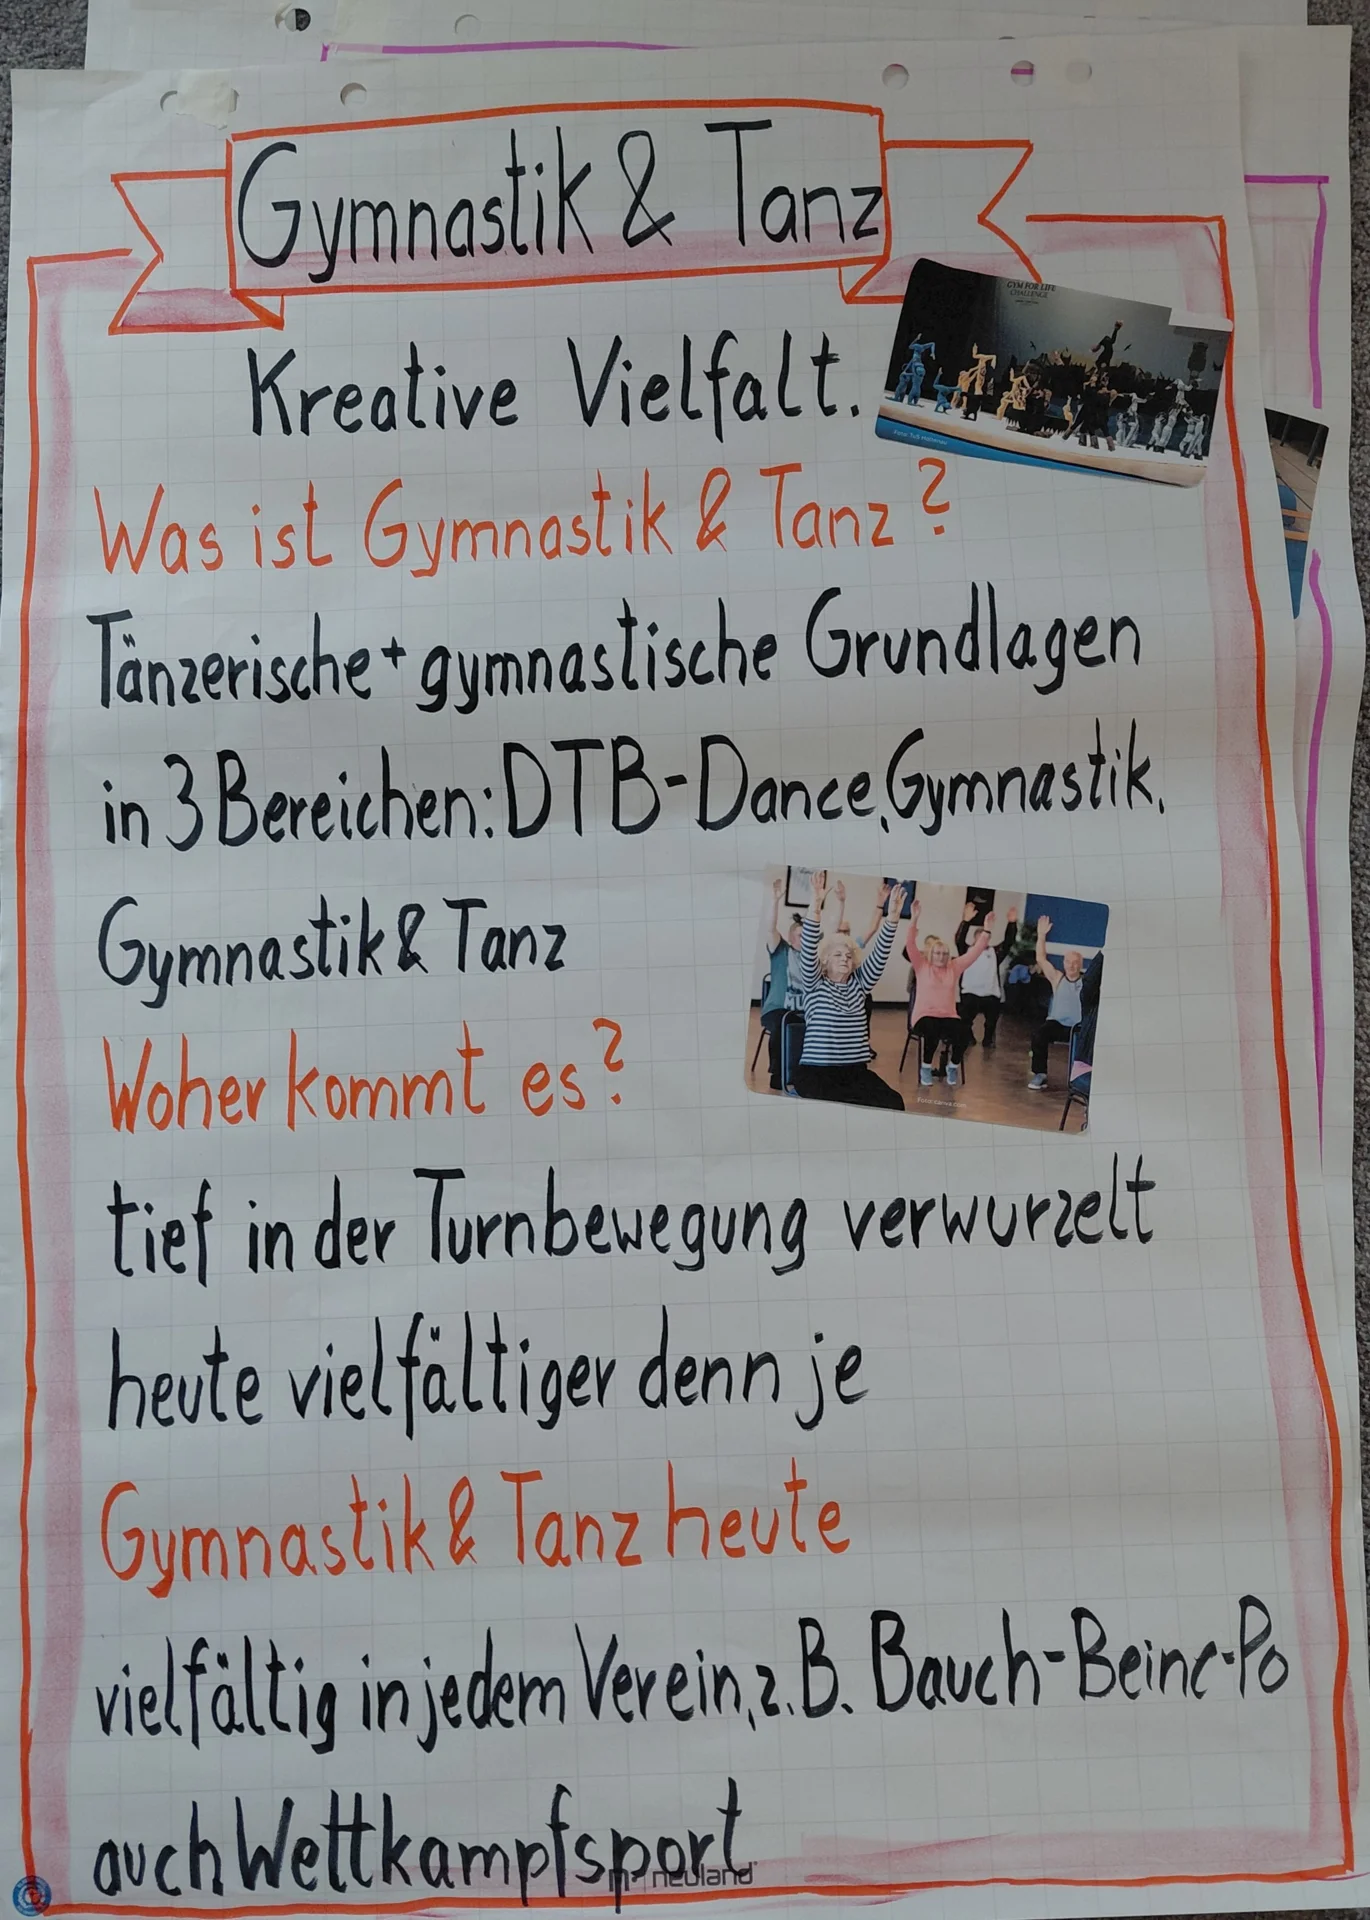 Gymnastik & Tanz
GYM FOR LIFE
CHALLENGE
Kreative Vielfalt.
Foto: TuS Hattenau
Was ist Gymnastik & Tanz?
Tänzerische + gymnastische Grundlagen
in 3 Bereichen: DTB-Dance, Gymnastik,
Gymnastik & Tanz
Foto: canva.com
Woher kommt es?
tief in der Turnbewegung verwurzelt
heute vielfältiger denn je
Gymnastik & Tanz heute
vielfältig in jedem Verein, z.B. Bauch-Beine-Po
auch Wettkampfsport
neuland